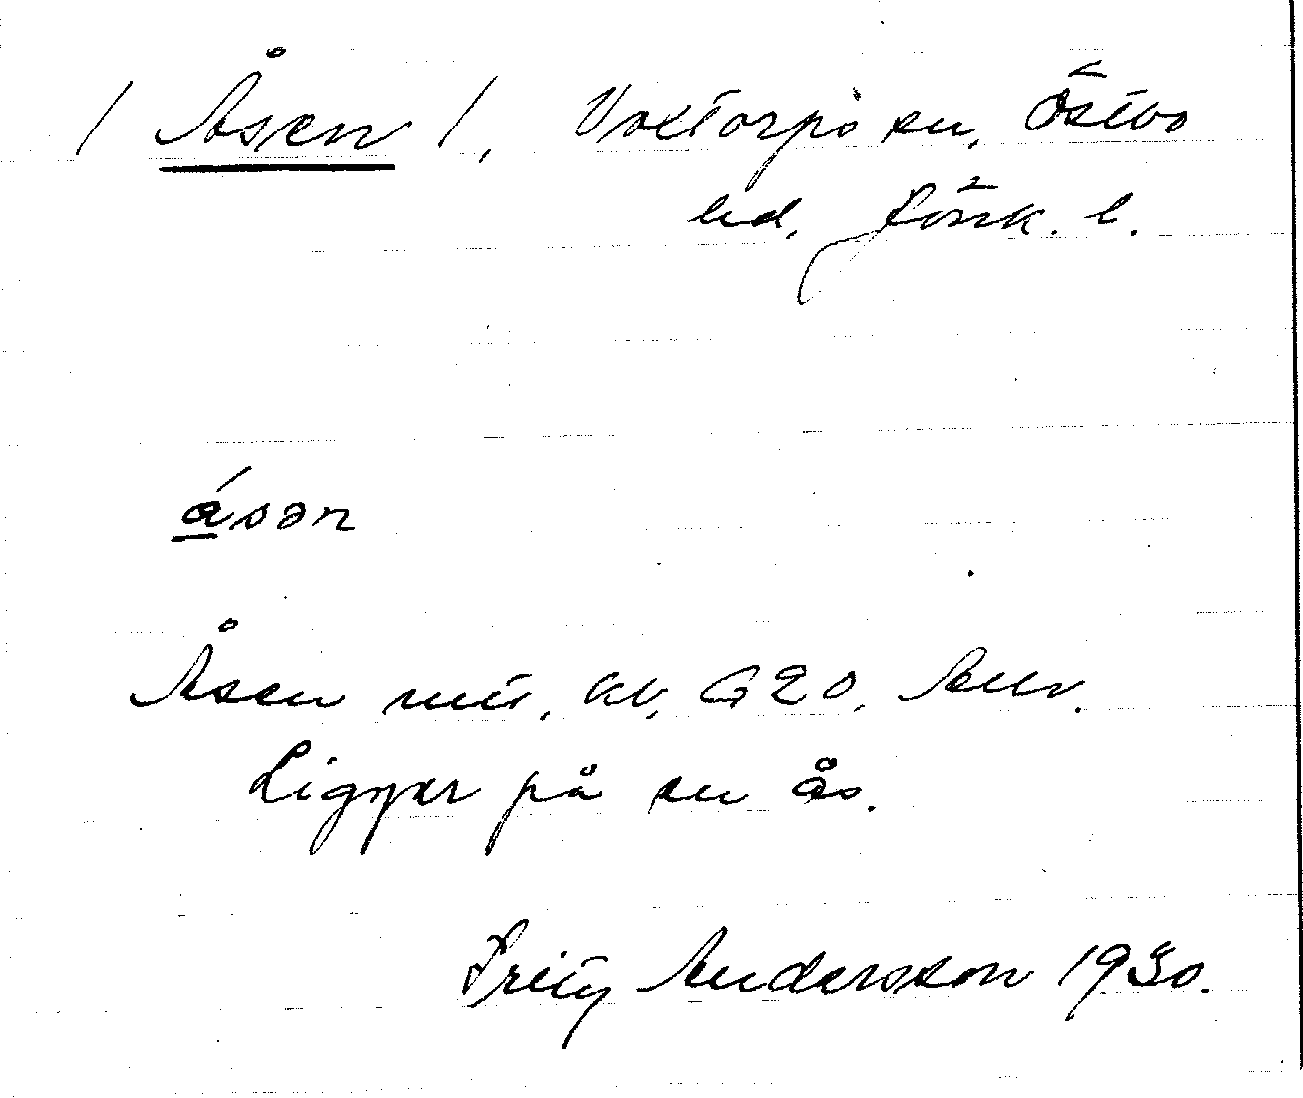 / Åsen /, Voxtorps sn, Östbo
hd, Jönk. l.
åsən
Åsen mtl. kv. G20, Allv.
Ligger på en ås.
Fritz Andersson 1930.